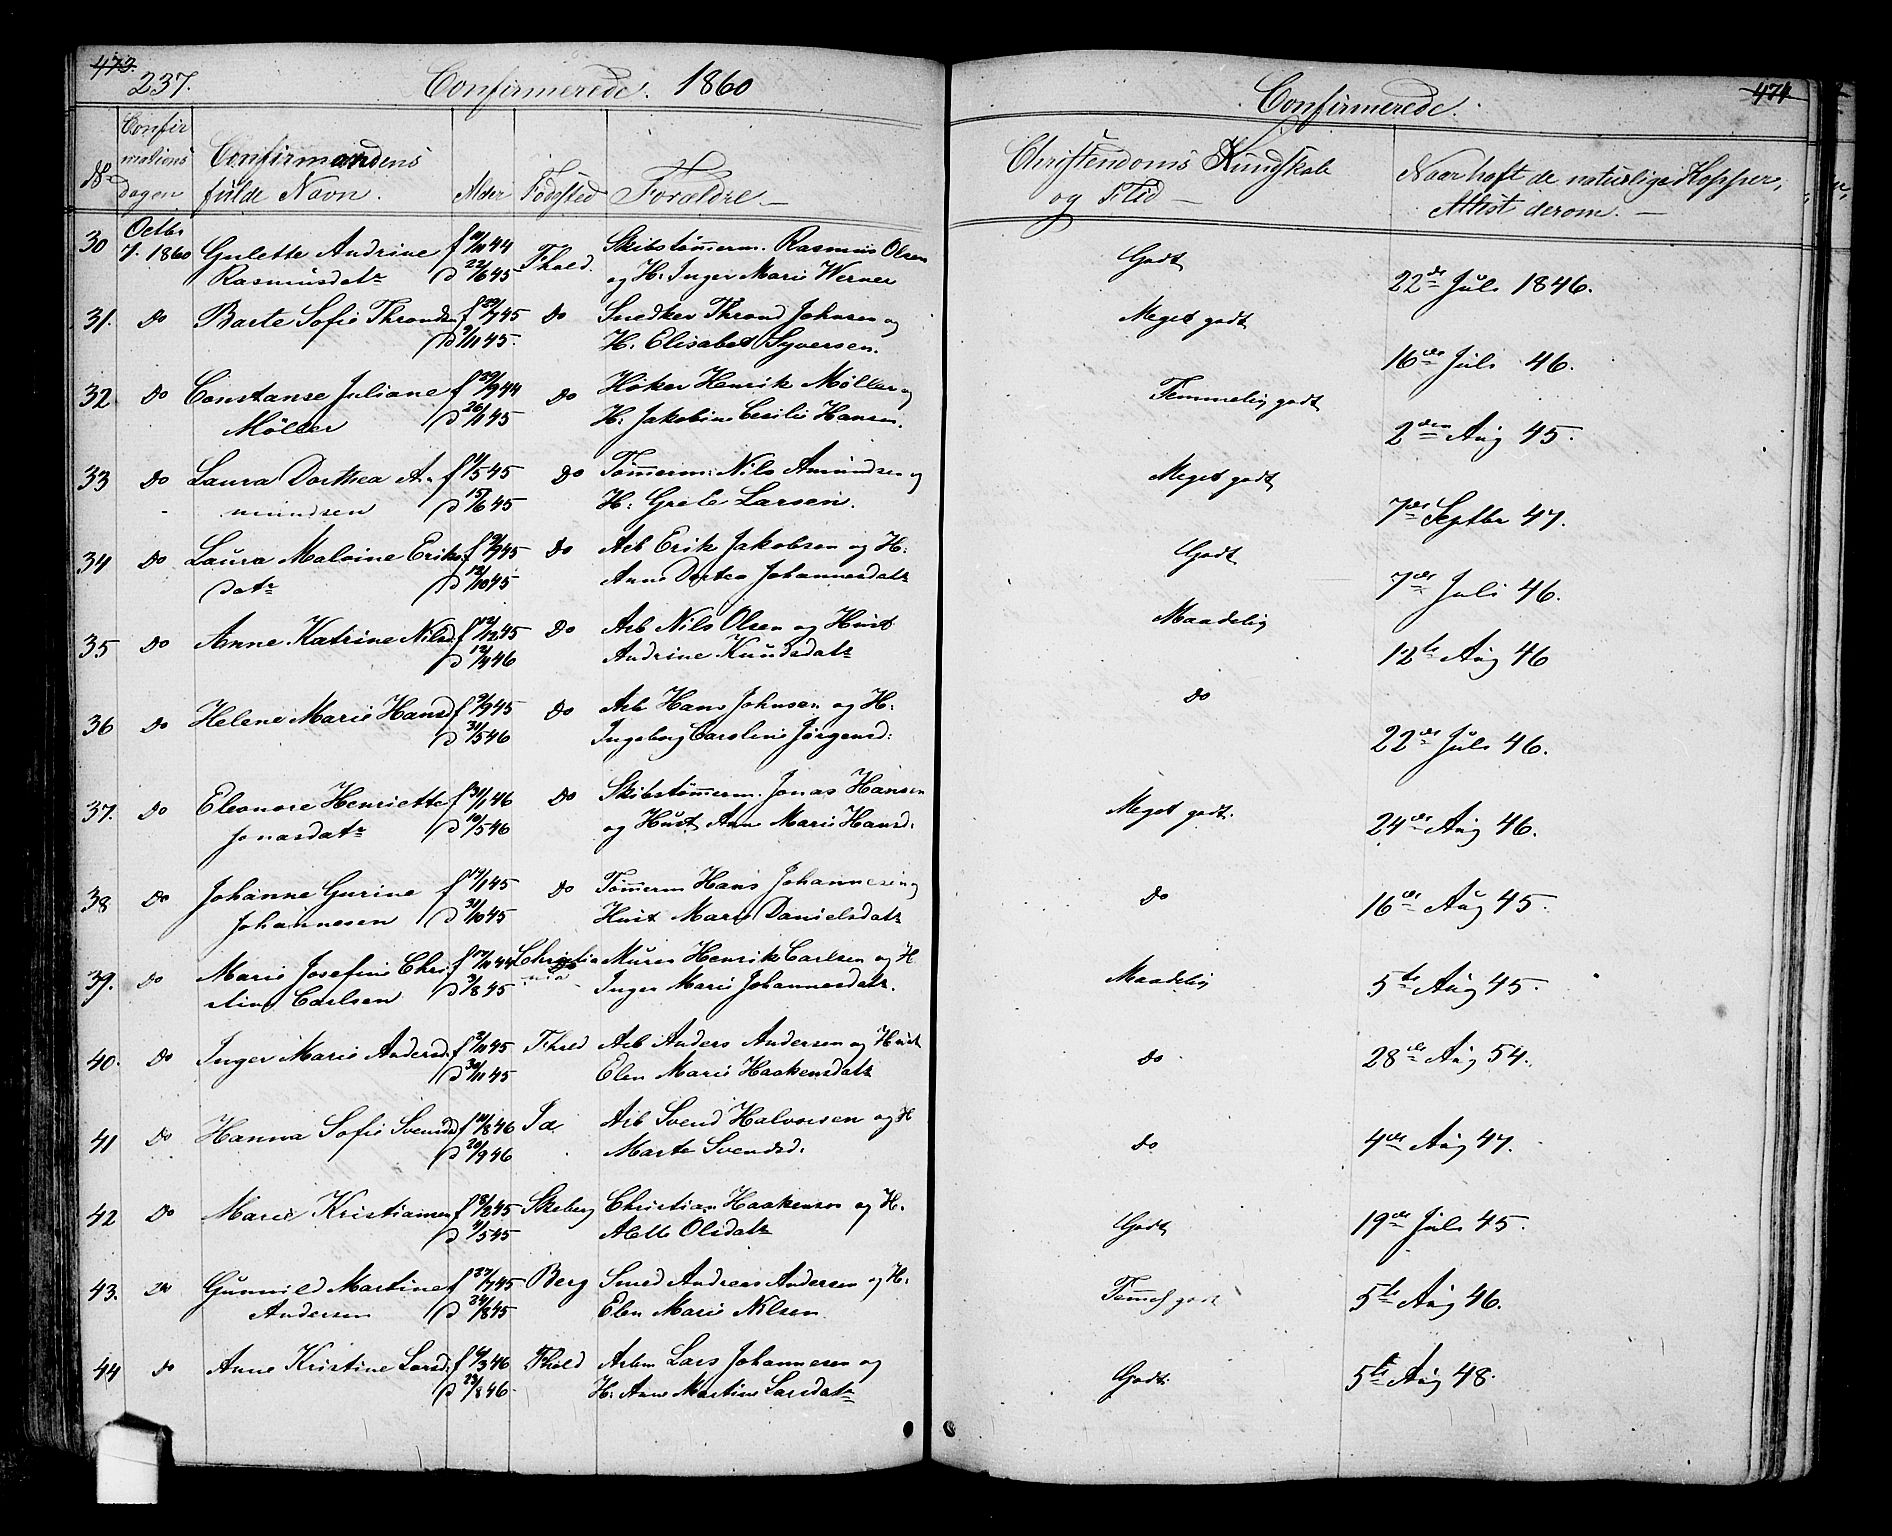 473.
237.
Confirmerede. 1860
Confirmerede.
474
No
Confir
mations
Dagen
Confirmandens
fulde Navn.
Alder
Fødested
Forældre.
Christendoms Kundskab
og Flid
Naar haft de naturlige Kopper,
Attest derom.
30 Octbr 7. 1860 Gulette Andrine f 44 Fhald. Skibstømerm. Rasmus Olsen Godt 22de Juli 1846.
Rasmusdatr d 22/6 45 og H. Inger Marie Werner
31. Do Barte Sofie Thronds f 29/7 45 Do Snedker Thrond Johnsen og Meget godt 16de Juli 46.
d 9/11 45. H. Elisabet Syversen.
32 Do Constanse Juliane f 29/9 44 Do Høker Henrik Møller og Temmelig godt 2den Aug 45.
Møller d 26/1 45 H. Jakobine Cecilie Hansen.
33 Do Laura Dorthea A- f 11/5 45 Do Tømerm: Nils Amundsen og Meget godt 7de Septbr 47.
mundsen d 15/6 45 H: Grete Larsen.
34 Do Laura Malvine Eriks f 45 Do Arb Erik Jakobsen og H: Godt 7de Juli 46.
datr d 12/10 45 Anne Dortea Johannesdatr
35 Do Anne Katrine Nilsd f 12/12 45 Do Arb Nils Olsen og Hust Maadelig 12te Aug 46
d 12/4 46 Andrine Knudsdatr
36 Do Helene Marie Hansd f 9/9 45 Do Arb Hans Johnsen og H: do 22de Juli 46.
d 31/5 46 Ingeborg Caroline Jørgensd:
37. Do Eleonore Henriette f 31/1 46 Do Skibstømerm. Jonas Hansen Meget godt. 24de Aug 46.
Jonasdatr d 10/5 46 og Hust Ane Marie Hansd:
38 Do Johanne Gurine f 17/1 45 Do Tømerm Hans Johannesen og do 16de Aug 45.
Johannesen d 31/10 45 Hust Maria Danielsdatr
39. Do Marie Josefine Chri f 17/11 44 Christia Murer Henrik Carlsen og H Maadelig 5te Aug 45.
stine Carlsen d 3/8 45 nia Inger Marie Johannesdatr.
40. Do Inger Marie Andersd f 2/11 45 Fhald Arb Anders Andersen og Hust do 28de Aug 54.
d 30/11 45 Elen Marie Haakensdatr
41 Do Hanna Sofie Svensd f 14/8 46 Id Arb Svend Halvorsen og H do 4de Aug 47.
d 20/9 46 Marte Svendsd.
42 Do Marie Kristiansen f 45 Skeberg Christian Haakensen og H. Godt 19de Juli 45.
d 4/5 45 Alette Olsdatr
43. Do Gunnild Martine f 27/7 45 Berg Smed Andreas Andersen og H: Temel godt 5te Aug 46.
Andersen d 24/8 45 Elen Marie Nilsen
44 Do Anne Kristine Larsd f 46 Fhald Arbm Lars Johannesen og Godt. 5te Aug 48.
d 23/8 46. H. Anne Martine Larsdatr